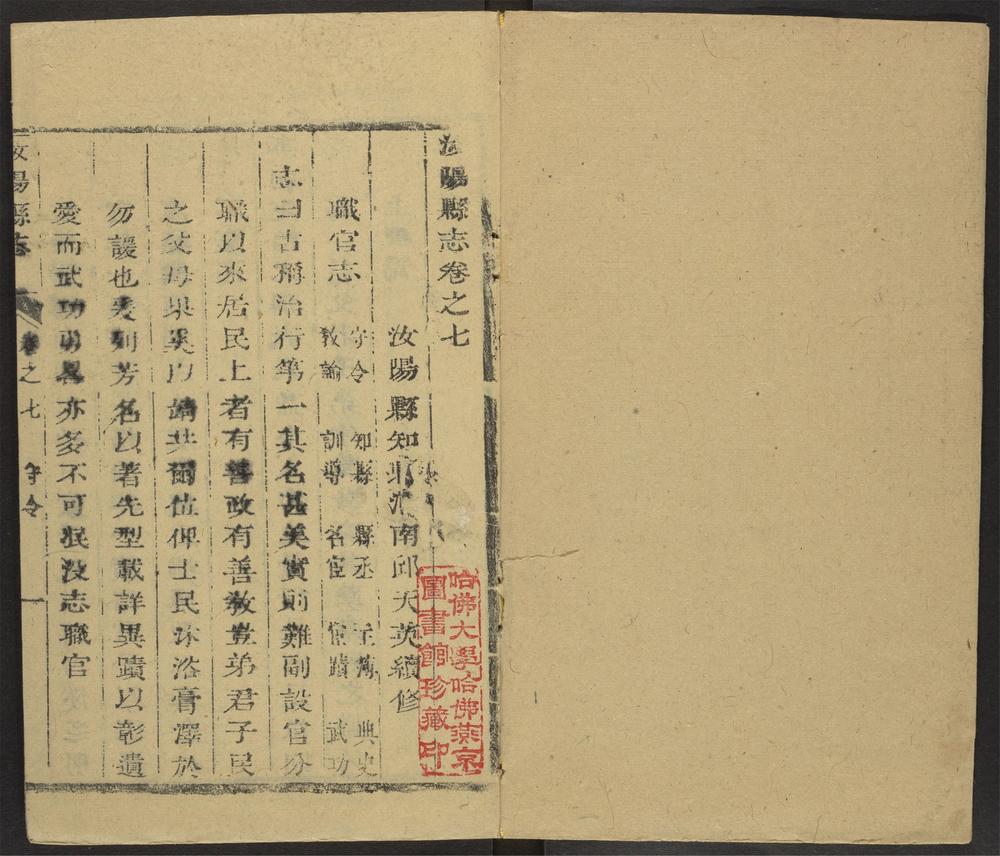 汝陽縣志卷之七
汝陽縣知縣淮南邱天英續修
職官志
守令 知縣 縣丞 主簿 典史
教諭 訓導 名宦 宦蹟 武功
志曰古稱治行第一其名甚美實則難副設官分
職以來居民上者有善政有善教豈弟君子民
之父母果奚以靖共爾位俾士民沐浴膏澤於
勿諼也爰列芳名以著先型載詳異蹟以彰遺
愛而武功勇畧亦多不可泯沒志職官
汝陽縣志 卷之七 守令 一
哈佛大學哈佛燕京
圖書館珍藏印